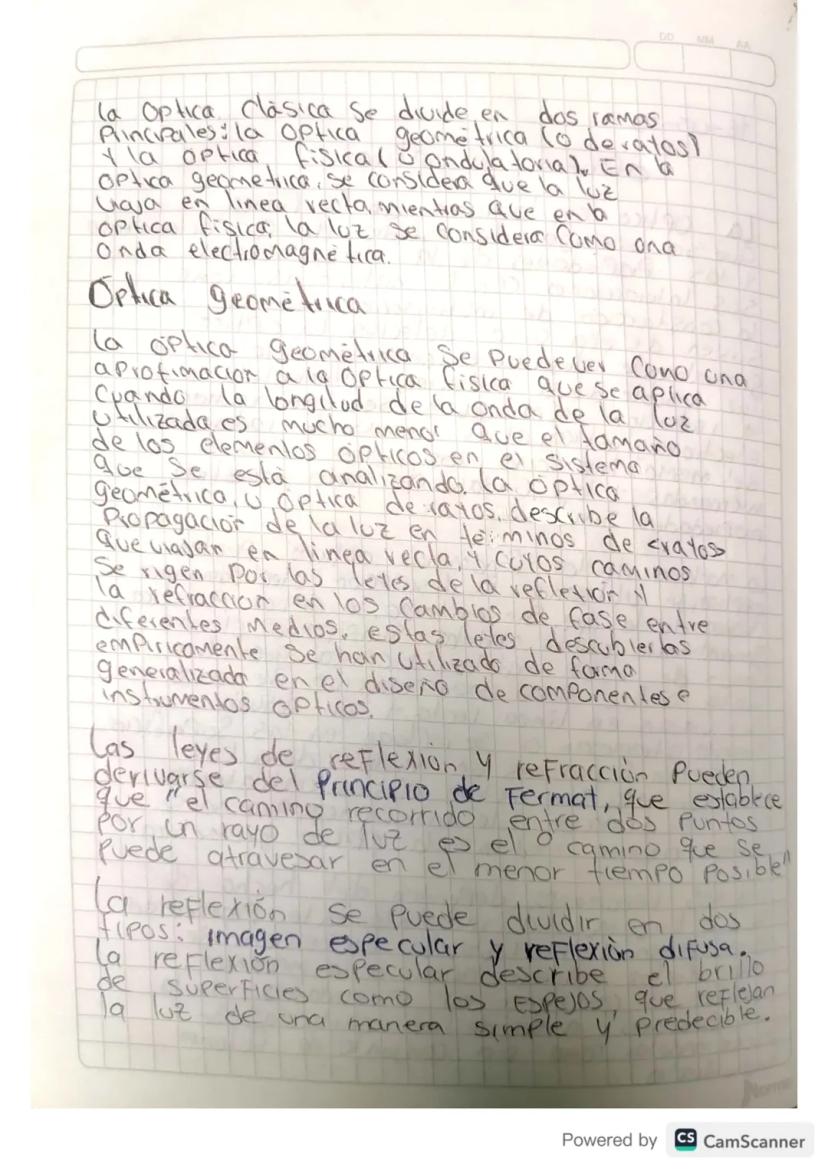 DD MM AA
la Optica Clásica Se divide en dos ramas
Principales: la Optica geométrica (o de rayos)
y la optica física (u ondulatoria). En la
optica geometrica, se considera que la luz
viaja en linea recta, mientras que en la
optica física, la luz se considera Como una
Onda electromagnética.
Óptica geométrica
La óptica geométrica Se Puede ver Como una
aproximacion a la Optica física que se aplica
Cuando la longitud de la onda de la luz
utilizada es mucho menor que el tamaño
de los elementos ópticos en el sistema
que Se está analizando. La óptica
geométrica, u óptica de rayos, describe la
Propagación de la luz en términos de <rayos>
que viajan en línea recta, y cuyos caminos
Se rigen por las leyes de la reflexión y
la refracción en los Cambios de fase entre
diferentes medios. estas leyes, descubiertas
empíricamente Se han utilizado de forma
generalizada en el diseño de componentes e
instrumentos opticos.
Las leyes de reflexión y refracción Pueden
derivarse del Principio de Fermat, que establece
que "el camino recorrido entre dos Puntos
por un rayo de luz es el camino que se
Puede atravesar en el menor tiempo posible"
La reflexión Se puede dividir en dos
tipos: imagen especular y reflexión difusa.
La reflexión especular describe el brillo
de superficies como los espejos, que reflejan
la luz de una manera simple y predecible.
Norma
Powered by CS CamScanner